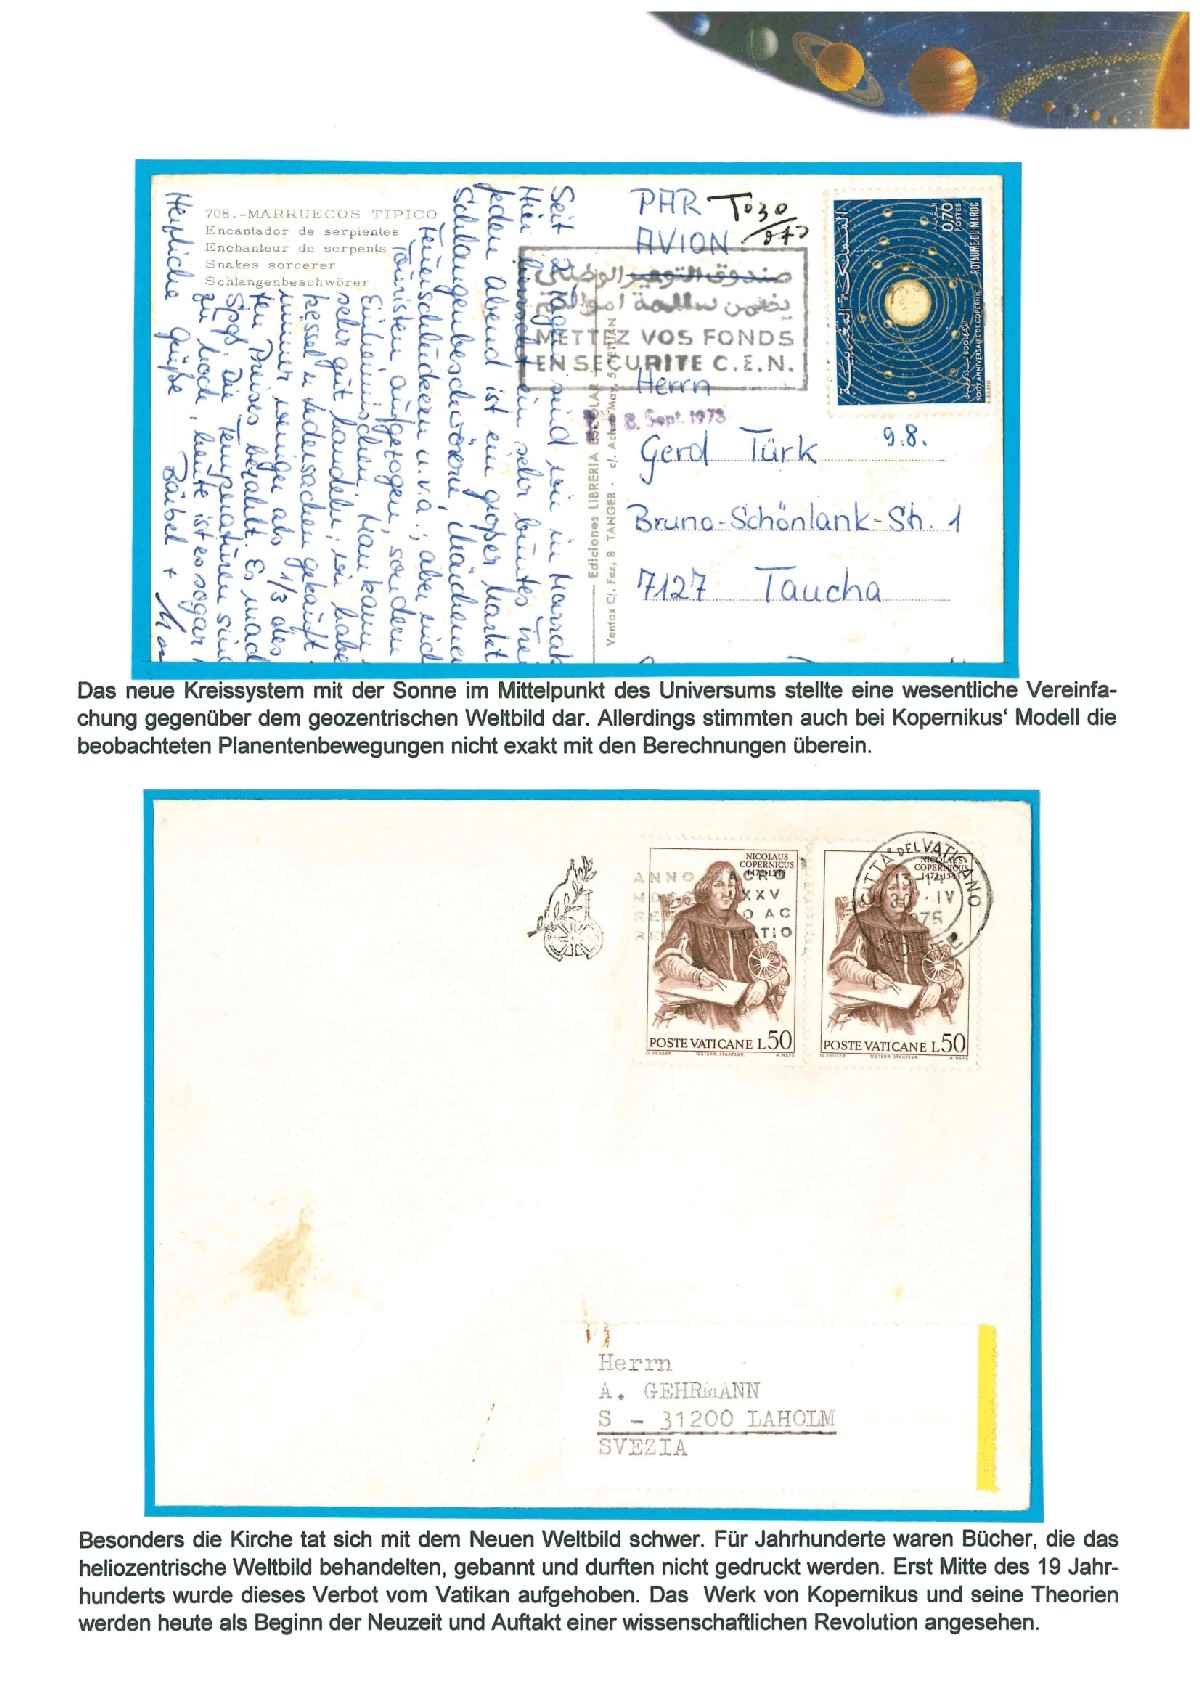 708.-MARRUECOS TIPICO
Encantador de serpientes
Enchanteur de serpents
Snakes sorcerer
Schlangenbeschwörer
Seit 2 Tagen sind wir in
Hier herrscht ein sehr buntes
jeden Abend ist ein großer Markt
Schlangenbeschwörern, Märchener
Feuerschluckern u.v.a.; aber nicht
Touristen aufgezogen, sondern
Einheimischen. Man kann
sehr gut handeln; wir habe
kessel u. Ledersachen gekauft
immer weniger als 1/3 des
ten Preises bezahlt. Es mach
Spaß. Die Temperaturen sin
zu hoch, heute ist es sogar
Herzliche Grüße Bärbel +
Ediciones LIBRERIA ESCOLAR -
Ventas C/. Fez, 8 TANGER -
PAR
AVION
T030
صندوق التوفير الوطني
يضمن سلامة اموالكم
METTEZ VOS FONDS
EN SECURITE C.E.N.
8. Sept. 1973
0,70
POSTES
ROYAUME DU MAROC
المملكة المغربية
500E ANNIVERSAIRE COPERNIC
9.8.
Herrn
Gerd Türk
Bruno-Schönlank-Str. 1
7127 Taucha
Das neue Kreissystem mit der Sonne im Mittelpunkt des Universums stellte eine wesentliche Vereinfa-
chung gegenüber dem geozentrischen Weltbild dar. Allerdings stimmten auch bei Kopernikus‘ Modell die
beobachteten Planentenbewegungen nicht exakt mit den Berechnungen überein.
NICOLAUS
COPERNICUS
ANNO SACRO
POSTE VATICANE L.50
NICOLAUS
COPERNICUS
1473-1543
CITTA' DEL VATICANO
30 IV
1975
POSTE VATICANE L.50
Herrn
A. GEHRMANN
S - 31200 LAHOLM
SVEZIA
Besonders die Kirche tat sich mit dem Neuen Weltbild schwer. Für Jahrhunderte waren Bücher, die das
heliozentrische Weltbild behandelten, gebannt und durften nicht gedruckt werden. Erst Mitte des 19 Jahr-
hunderts wurde dieses Verbot vom Vatikan aufgehoben. Das Werk von Kopernikus und seine Theorien
werden heute als Beginn der Neuzeit und Auftakt einer wissenschaftlichen Revolution angesehen.